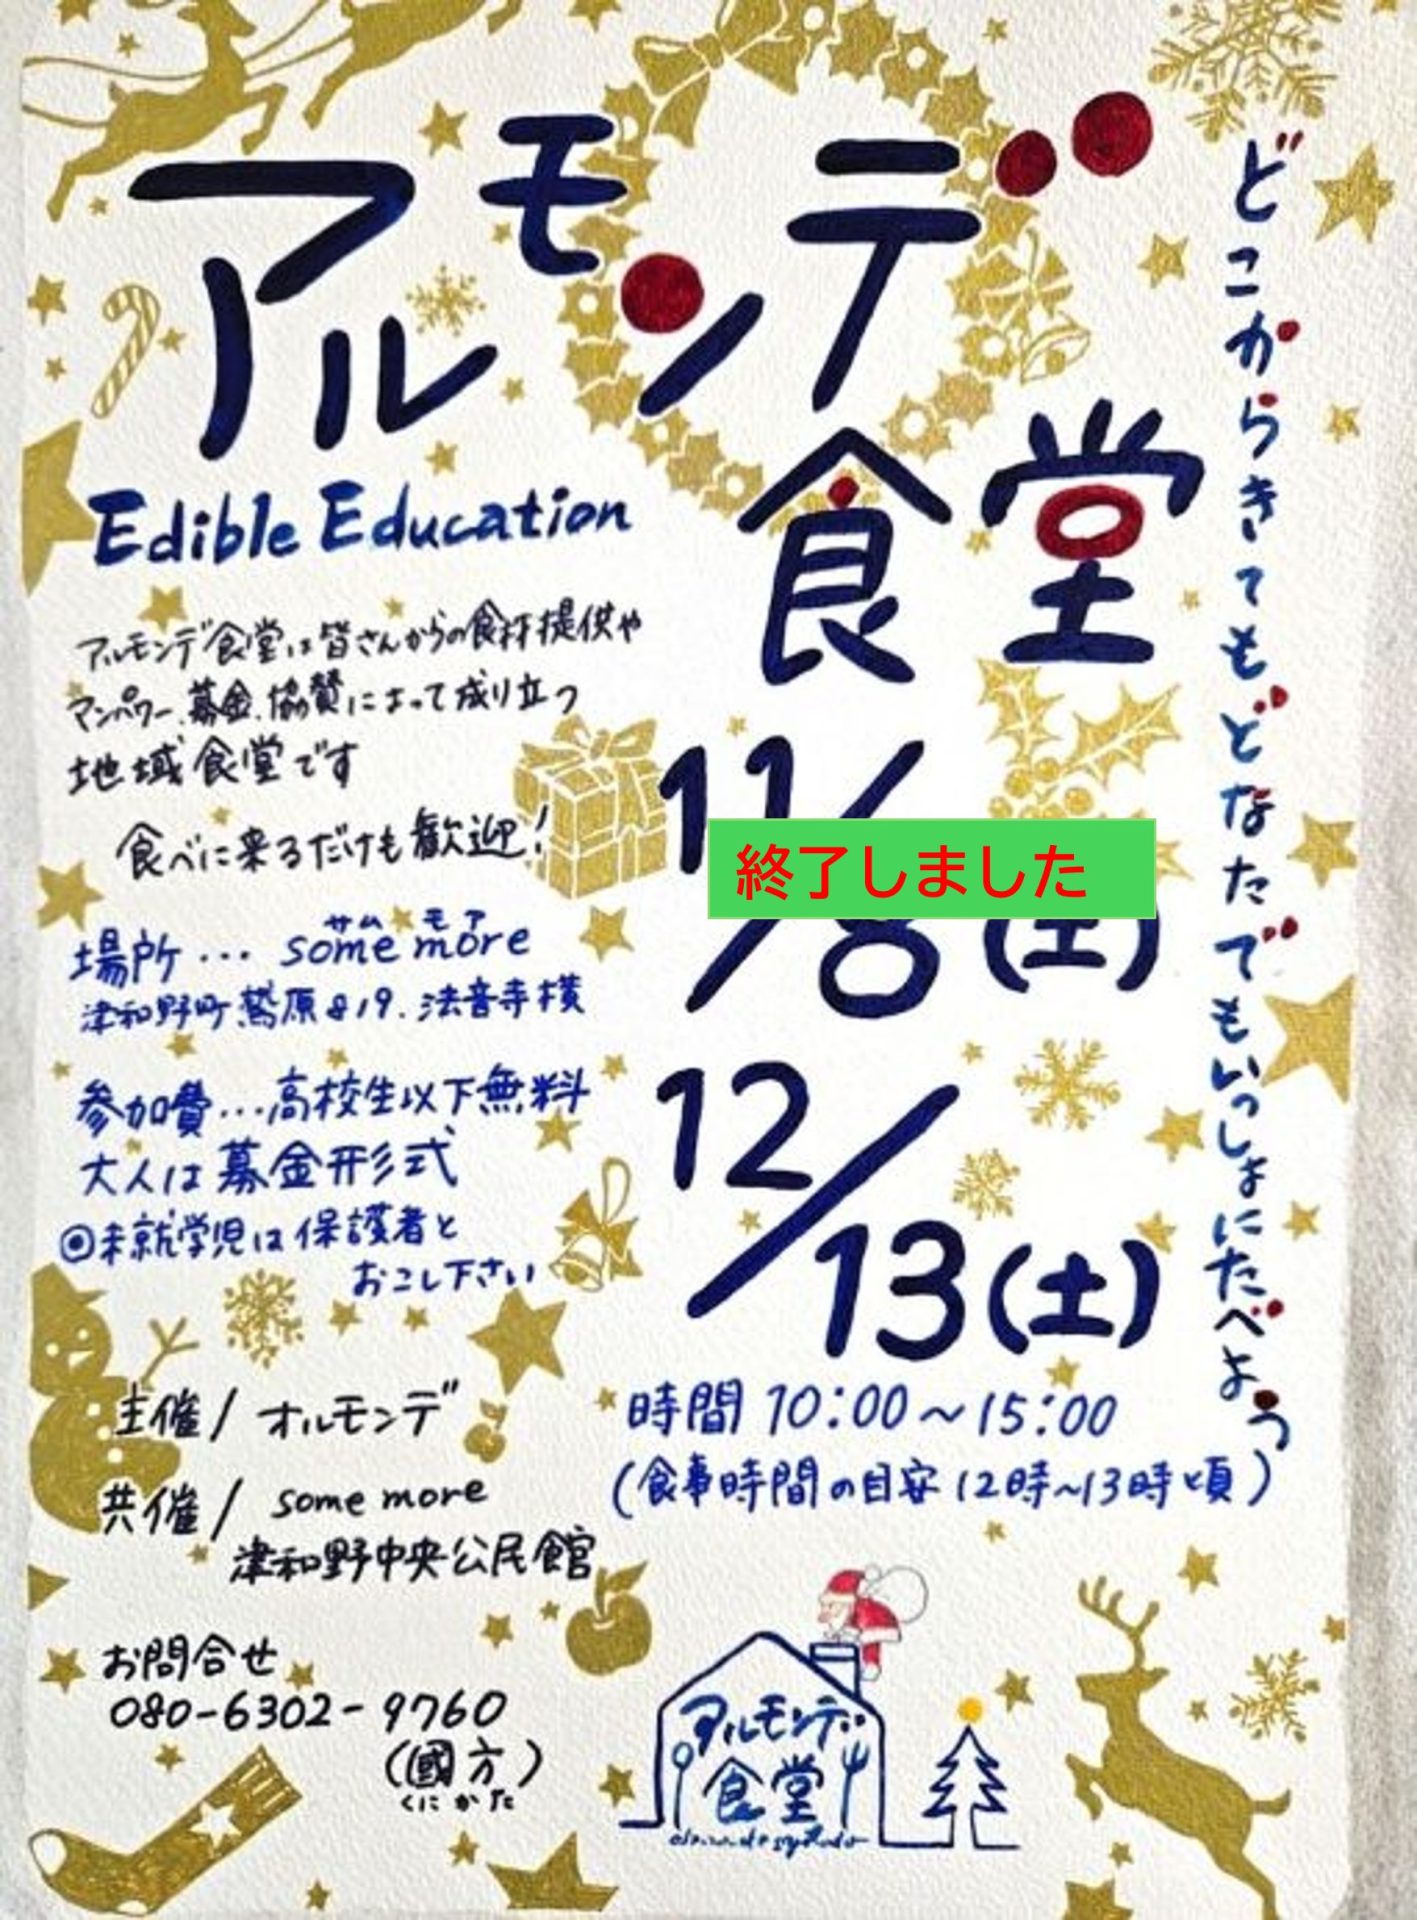 アルモンデ
食堂
どこからきてもどなたでもいっしょにたべよう
Edible Education
アルモンデ食堂は皆さんからの食材提供や
マンパワー、募金、協賛によって成り立つ
地域食堂です
食べに来るだけも歓迎!
11/8(土)
終了しました
場所… some more
サム モア
津和野町鷲原819. 法音寺横
参加費…高校生以下無料
大人は募金形式
◎未就学児は保護者と
おこし下さい
12/13(土)
時間 10:00~15:00
(食事時間の目安12時~13時頃)
主催/オルモンデ
共催/some more
津和野中央公民館
お問合せ
080-6302-9760
(國方)
くにかた
アルモンデ
食堂